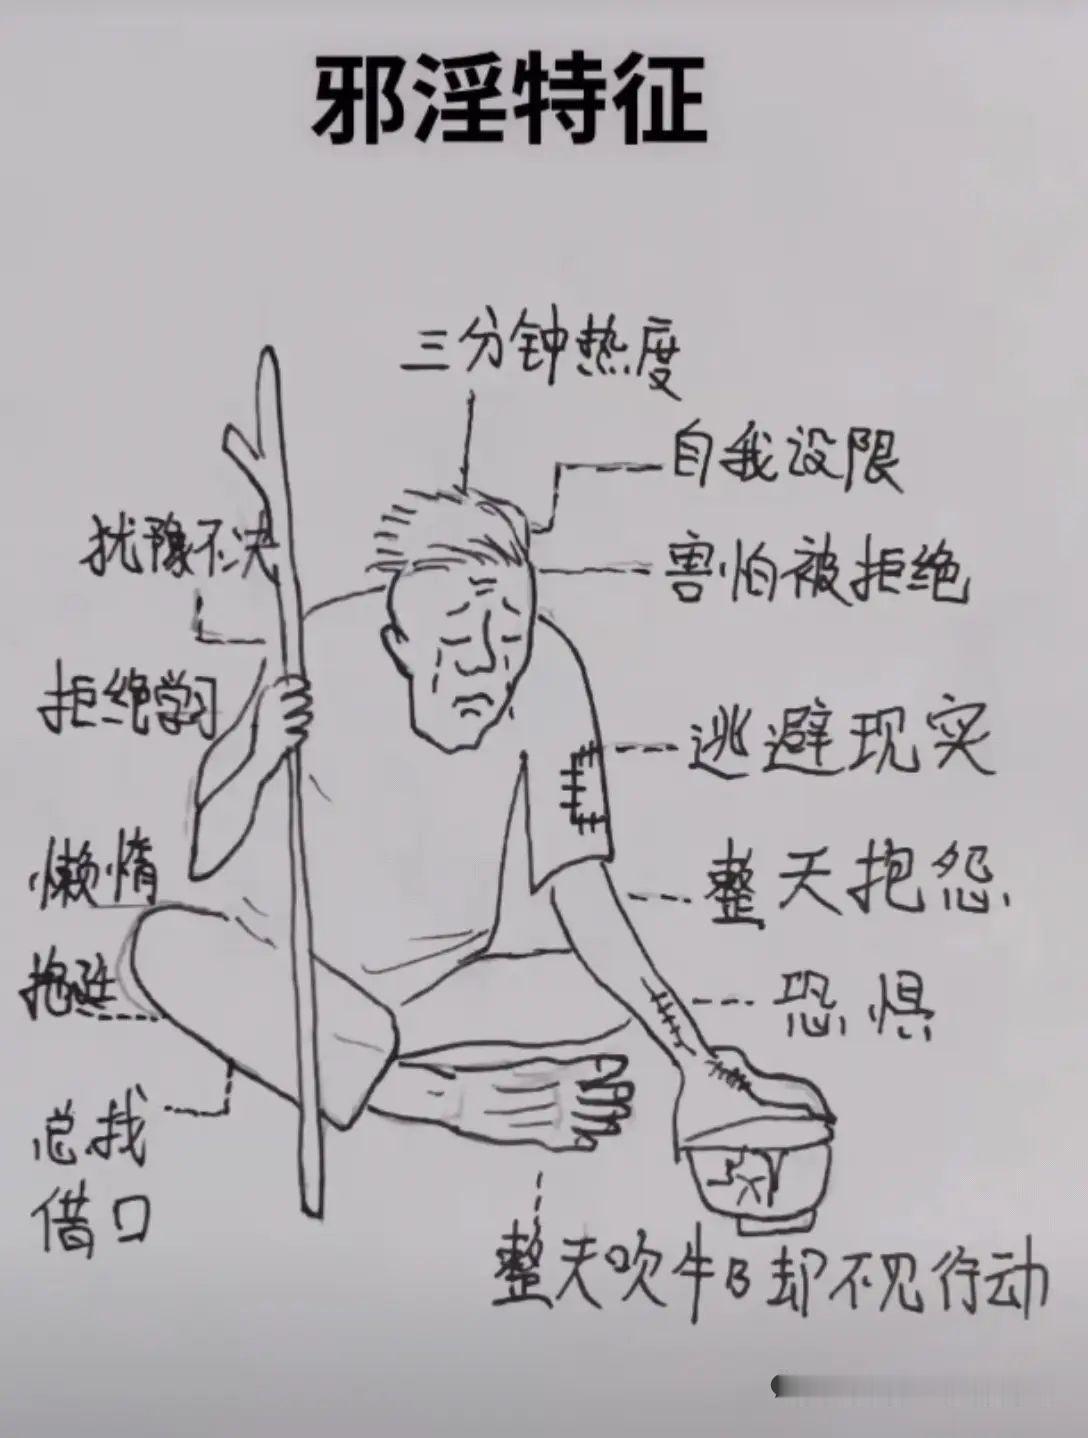 邪淫特征
三分钟热度
自我设限
犹豫不决
害怕被拒绝
拒绝学习
逃避现实
懒惰
整天抱怨
拖延
恐惧
总找
借口
整天吹牛B却不见行动